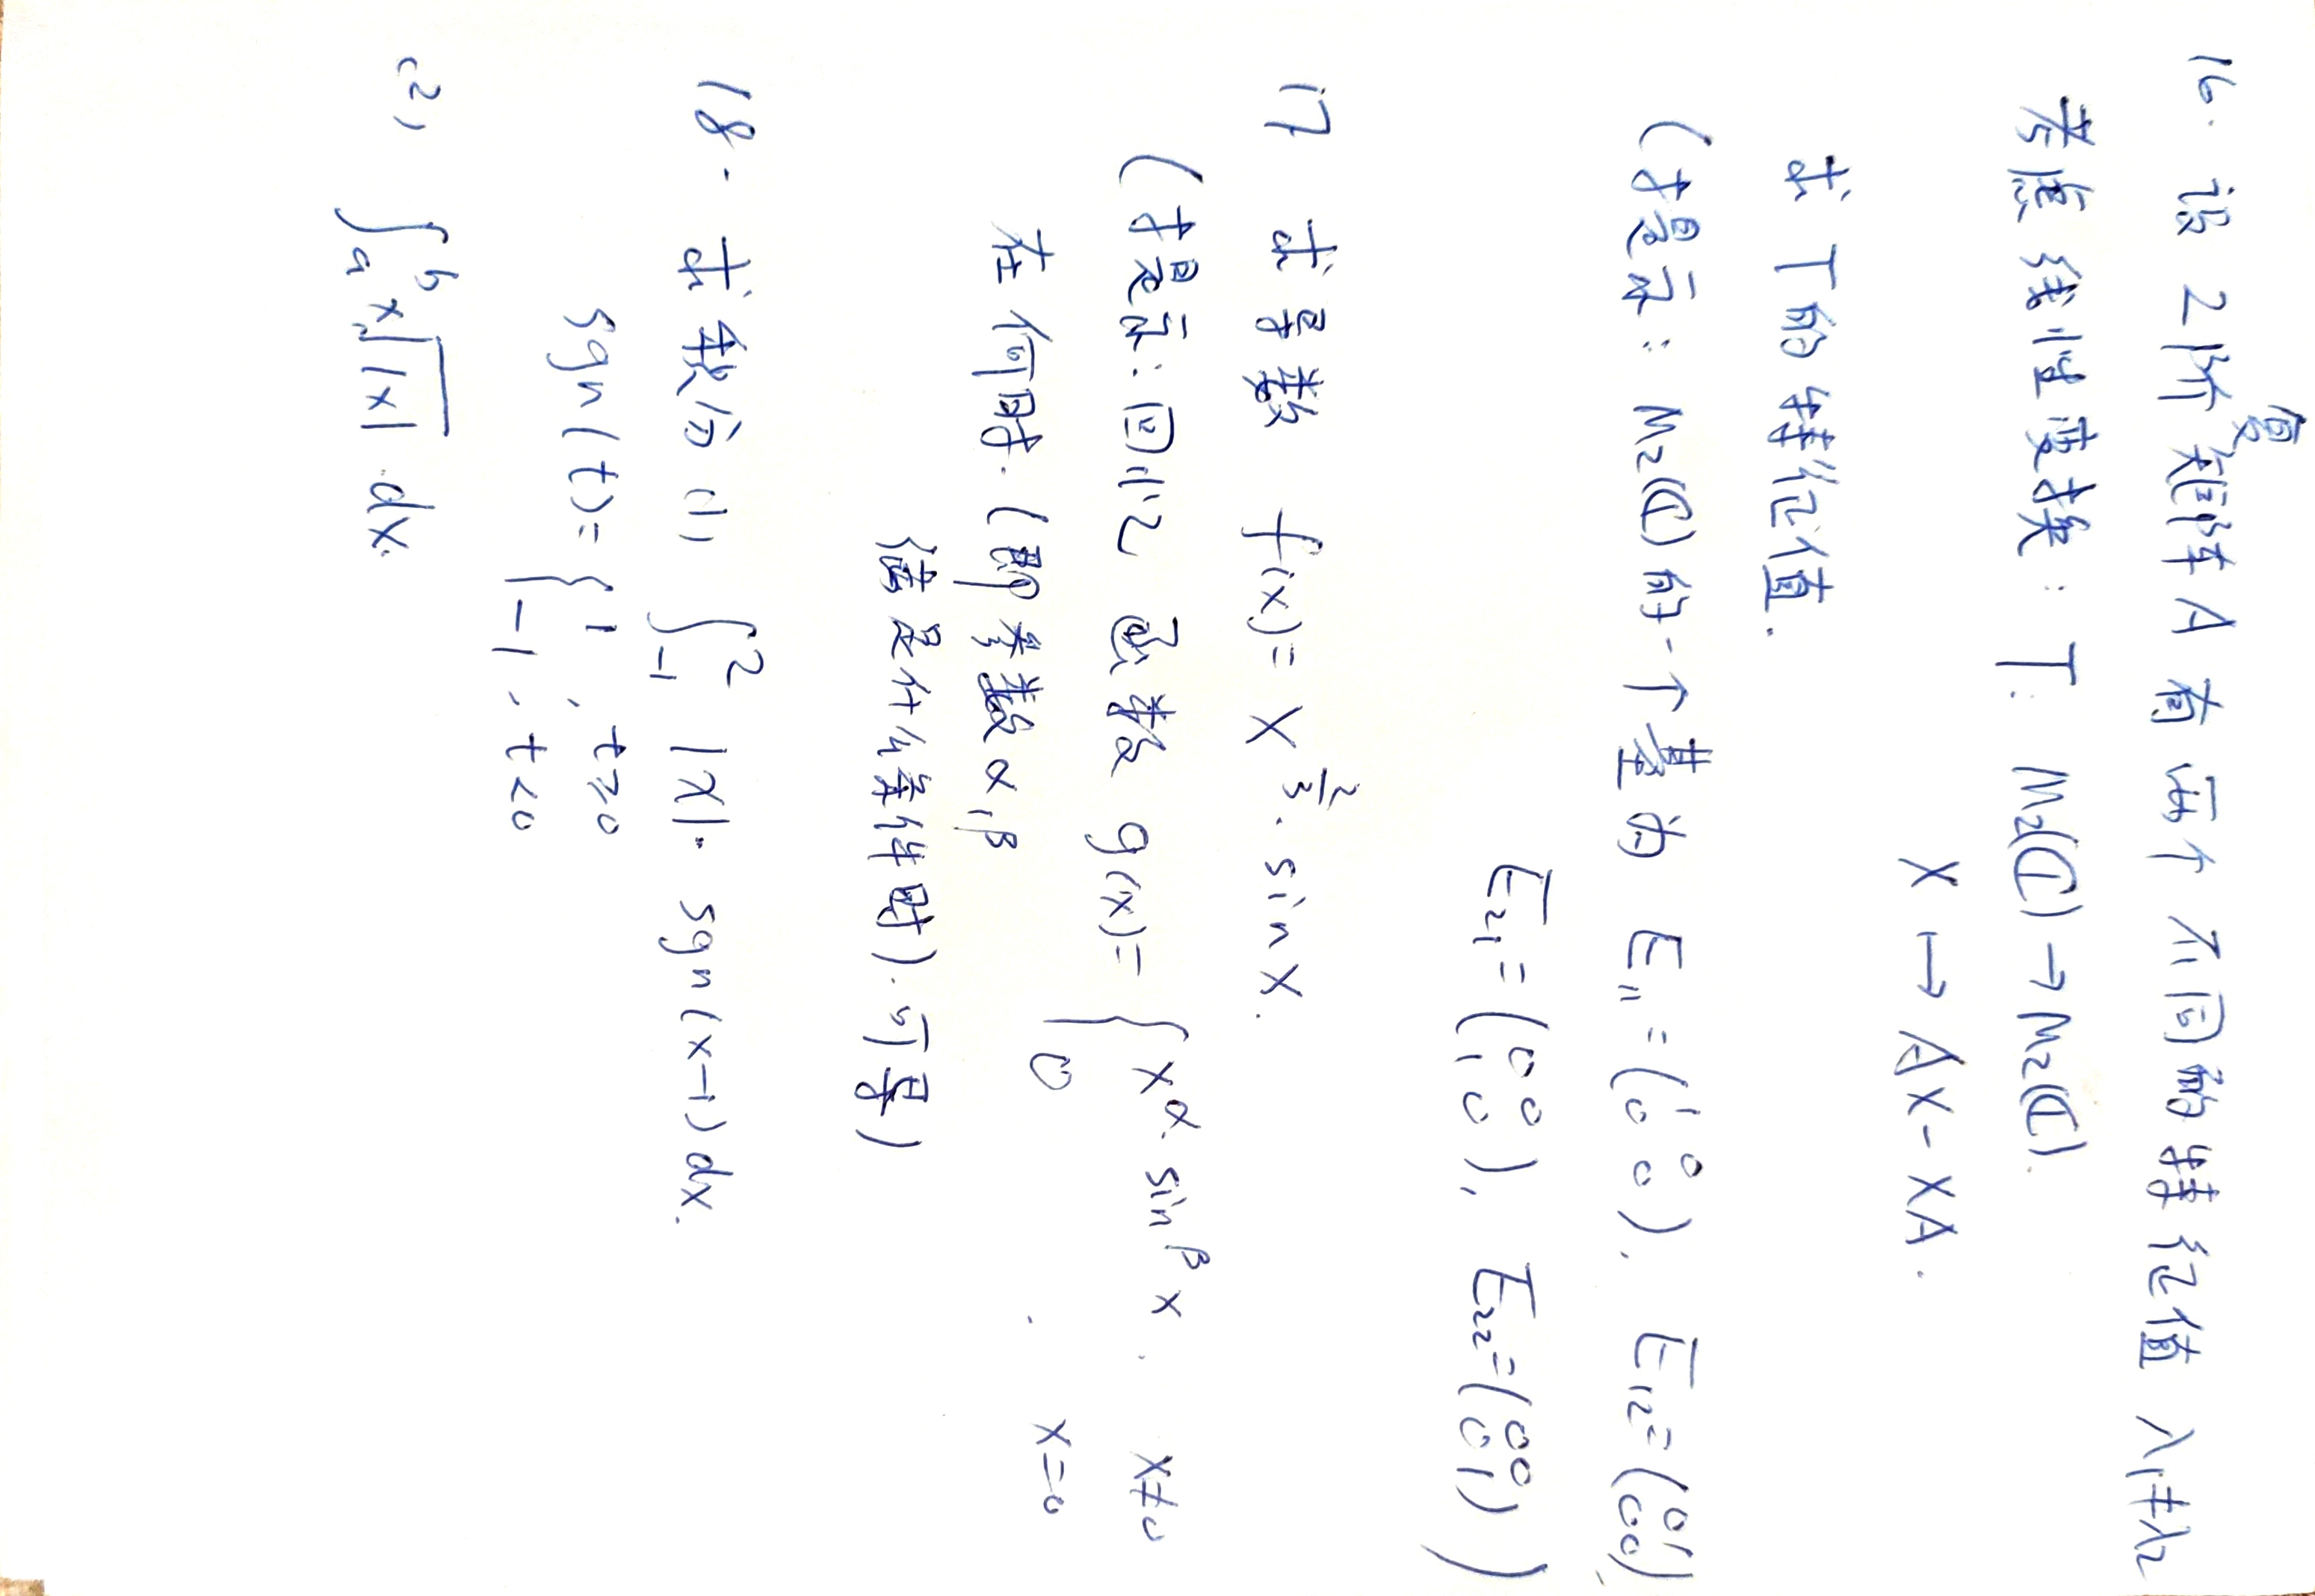 16. 设 2阶复矩阵 A 有两个不同的特征值 λ₁≠λ₂
考虑线性变换: T: M₂(ℂ) → M₂(ℂ).
X ↦ AX - XA.
求 T 的特征值.
(提示: M₂(ℂ) 的一个基为 E₁₁ = (1 0 / 0 0), E₁₂ = (0 1 / 0 0),
E₂₁ = (0 0 / 1 0), E₂₂ = (0 0 / 0 1))
17 求导数 f(x) = x^{2/3} · sin x.
(提示: 回忆 函数 g(x) = { x^α · sin^β x, x≠0
0, x=0
在何时. (即参数 α, β
满足什么条件时). 可导)
18. 求积分 (1) ∫_{-1}^{2} |x| · sgn(x-1) dx.
sgn(t) = { 1, t≥0
-1, t<0
(2) ∫_a^b x√|x| · dx.